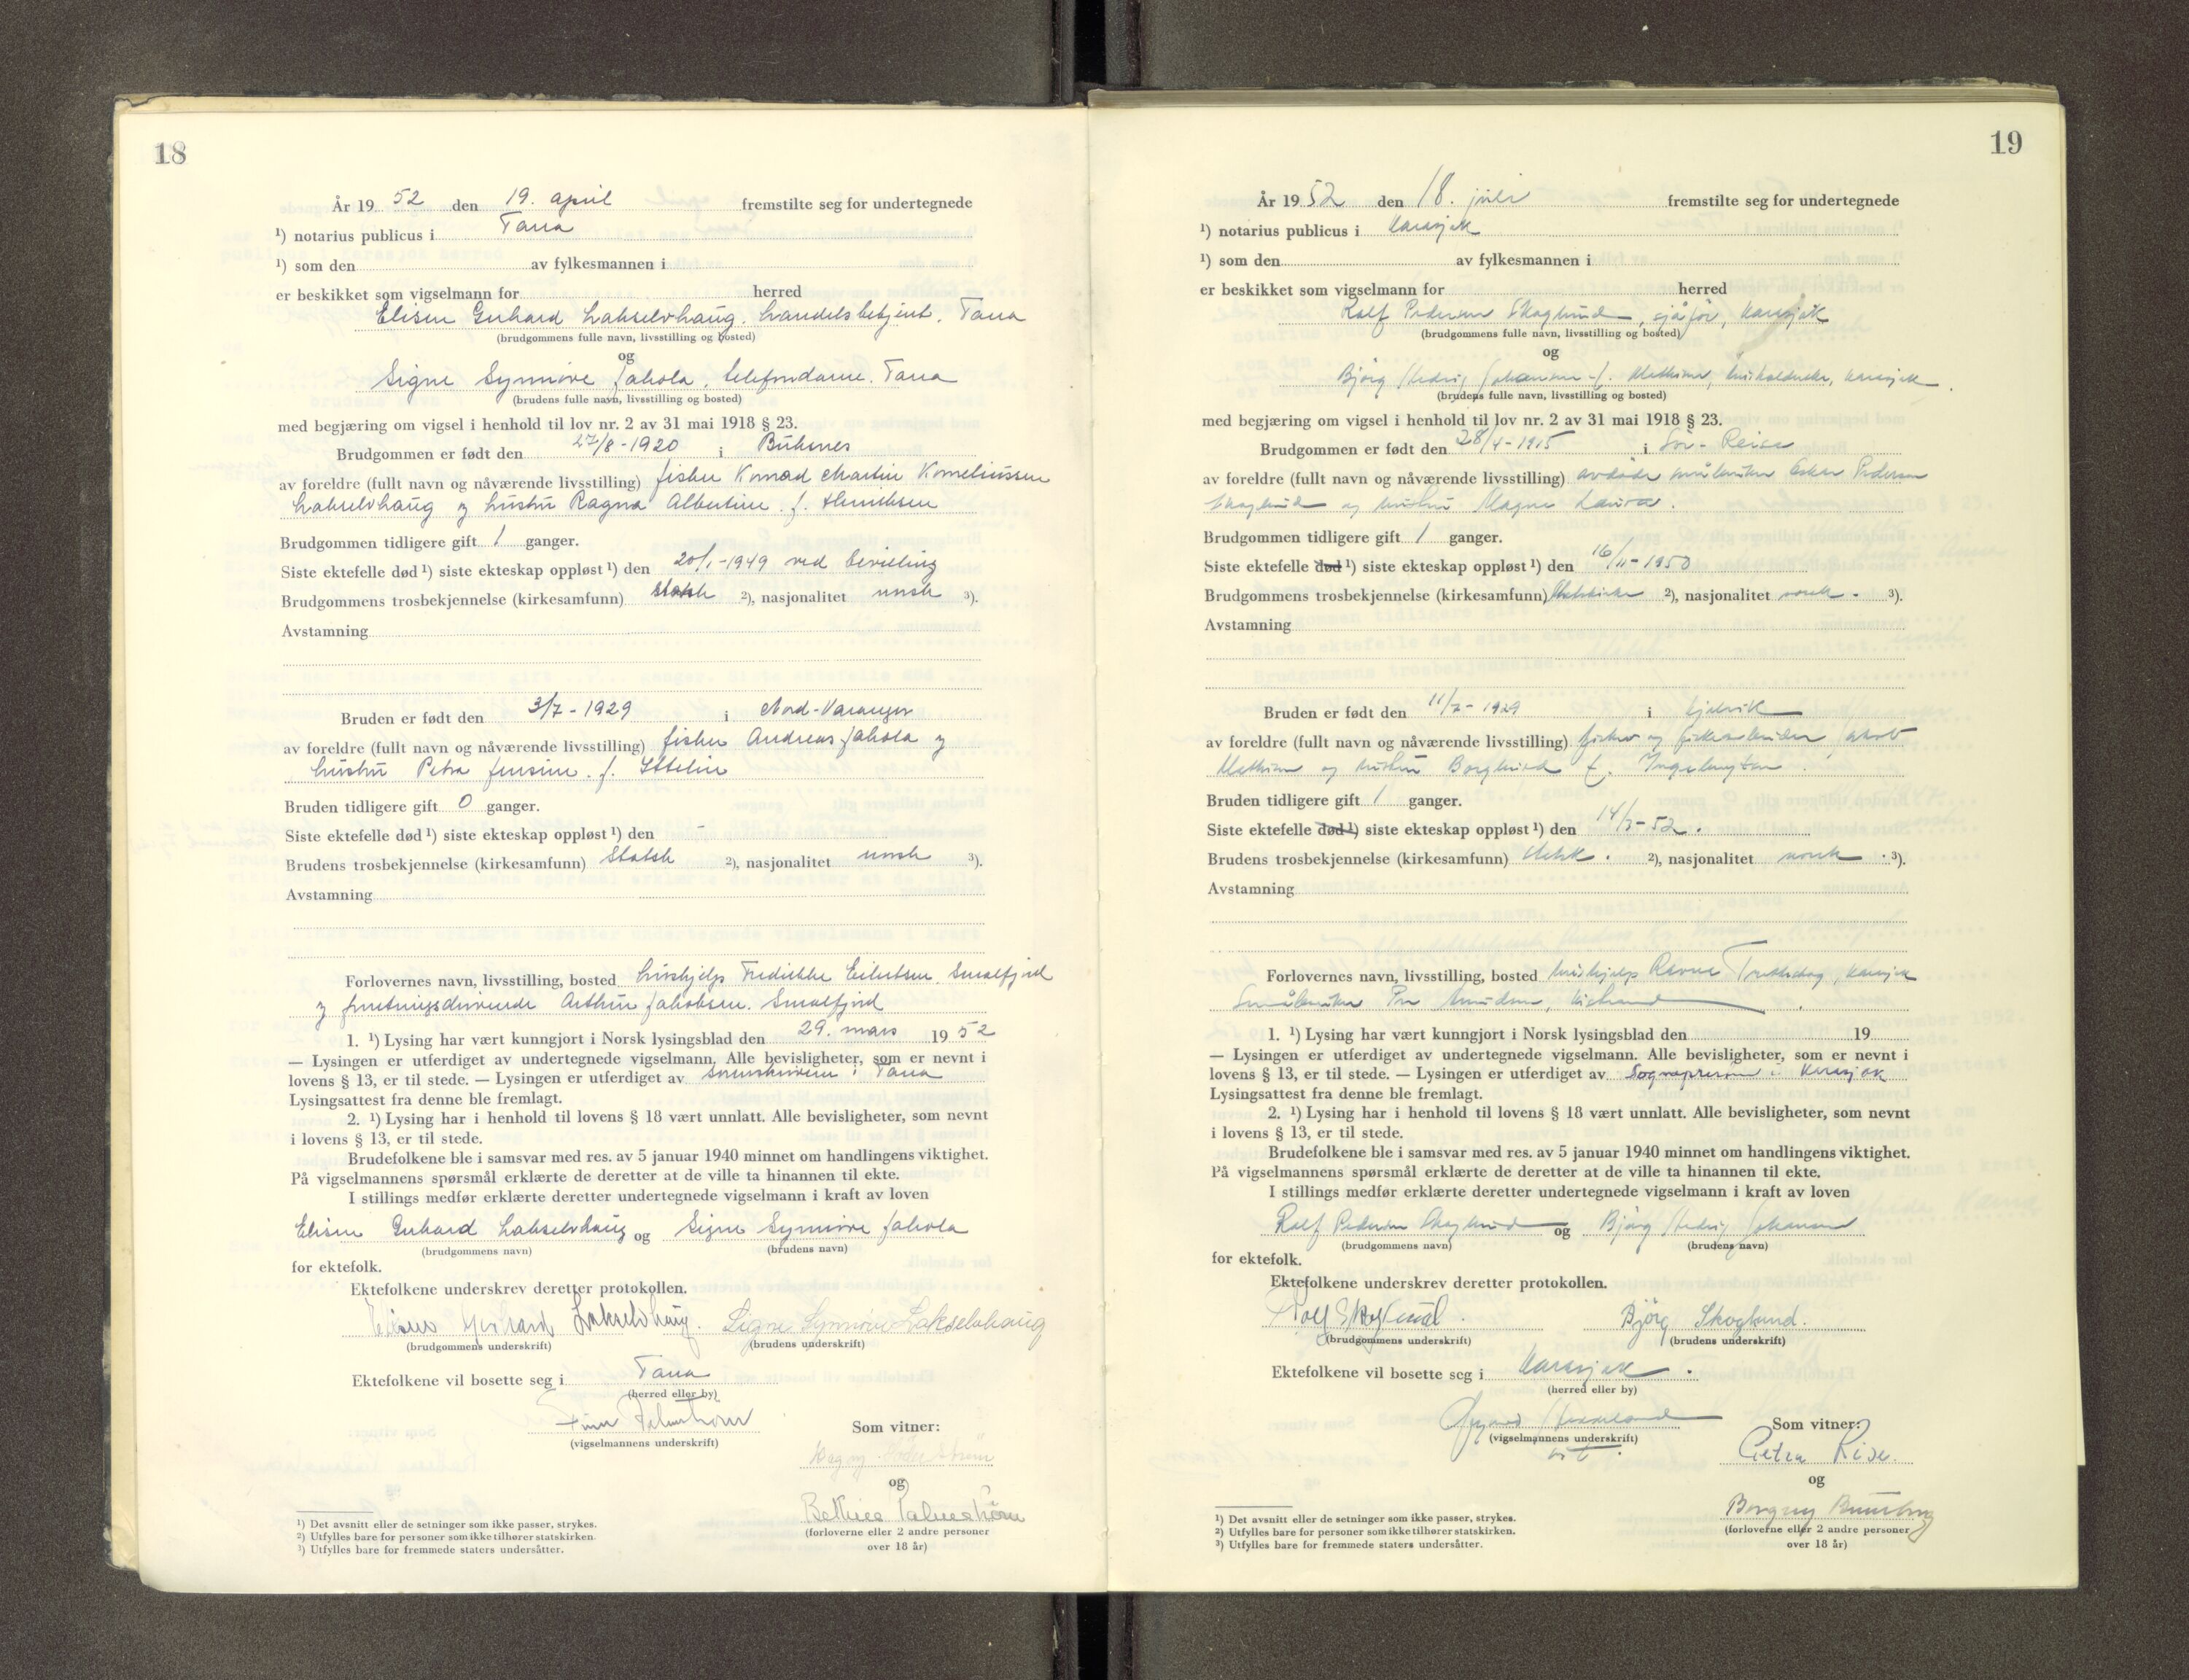 18
År 19 52 den 19. april fremstilte seg for undertegnede
¹) notarius publicus i Tana
¹) som den av fylkesmannen i
er beskikket som vigselmann for herred
Eliseu Gerhard Lakselvhaug. handelsbetjent. Tana
(brudgommens fulle navn, livsstilling og bosted)
og
Signe Synnöve Jakola, telefondame. Tana
(brudens fulle navn, livsstilling og bosted)
med begjæring om vigsel i henhold til lov nr. 2 av 31 mai 1918 § 23.
Brudgommen er født den 27/8-1920 i Buksnes
av foreldre (fullt navn og nåværende livsstilling) fisker Konrad Martin Korneliussen
Lakselvhaug og hustru Ragna Albertine. f. Henriksen
Brudgommen tidligere gift 1 ganger.
Siste ektefelle død ¹) siste ekteskap oppløst ¹) den 20/1-1949 ved bevilling
Brudgommens trosbekjennelse (kirkesamfunn) Statsk ²), nasjonalitet norsk ³).
Avstamning
Bruden er født den 3/7-1929 i Nord-Varanger
av foreldre (fullt navn og nåværende livsstilling) fisker Andreas Jakola og
hustru Petra Jensine. f.
Bruden tidligere gift 0 ganger.
Siste ektefelle død ¹) siste ekteskap oppløst ¹) den -
Brudens trosbekjennelse (kirkesamfunn) Statsk ²), nasjonalitet norsk ³).
Avstamning
Forlovernes navn, livsstilling, bosted hushjelp Fredrikke Eilertsen. Smalfjord
og forretningsdrivende Arthur Jakobsen. Smalfjord
1. ¹) Lysing har vært kunngjort i Norsk lysingsblad den 29. mars 19 52
— Lysingen er utferdiget av undertegnede vigselmann. Alle bevisligheter, som er nevnt i
lovens § 13, er til stede. — Lysingen er utferdiget av Sorenskriveren i Tana
Lysingsattest fra denne ble fremlagt.
2. ¹) Lysing har i henhold til lovens § 18 vært unnlatt. Alle bevisligheter, som nevnt
i lovens § 13, er til stede.
Brudefolkene ble i samsvar med res. av 5 januar 1940 minnet om handlingens viktighet.
På vigselmannens spørsmål erklærte de deretter at de ville ta hinannen til ekte.
I stillings medfør erklærte deretter undertegnede vigselmann i kraft av loven
Eliseu Gerhard Lakselvhaug og Signe Synnöve Jakola
(brudgommens navn) (brudens navn)
for ektefolk.
Ektefolkene underskrev deretter protokollen.
Eliseus Gerhard Lakselvhaug. Signe Synnöve Lakselvhaug
(brudgommens underskrift) (brudens underskrift)
Ektefolkene vil bosette seg i Tana
(herred eller by)
Finn Palmstrøm
(vigselmannens underskrift)
Som vitner:
Dagny
og
Bethice Palmstrøm
(forloverne eller 2 andre personer
over 18 år)
¹) Det avsnitt eller de setninger som ikke passer, strykes.
²) Utfylles bare for personer som ikke tilhører statskirken.
³) Utfylles bare for fremmede staters undersåtter.
19
År 19 52 den 18. juli fremstilte seg for undertegnede
¹) notarius publicus i Karasjok
¹) som den av fylkesmannen i
er beskikket som vigselmann for herred
Rolf Pedersen Skoglund, sjåfør, Karasjok
(brudgommens fulle navn, livsstilling og bosted)
og
Bjørg Hedvig Johansen f. Mathisen, Karasjok
(brudens fulle navn, livsstilling og bosted)
med begjæring om vigsel i henhold til lov nr. 2 av 31 mai 1918 § 23.
Brudgommen er født den 28/4-1915 i Sør-Reisa
av foreldre (fullt navn og nåværende livsstilling) avdøde småbruker Oskar Pedersen
Skoglund og hustru Magna Laura.
Brudgommen tidligere gift 1 ganger.
Siste ektefelle død ¹) siste ekteskap oppløst ¹) den 16/11-1950
Brudgommens trosbekjennelse (kirkesamfunn) Statskirke ²), nasjonalitet norsk. ³).
Avstamning
Bruden er født den 11/7-1929 i
av foreldre (fullt navn og nåværende livsstilling) fisker og Jakob
Mathisen og hustru Borghild f. Ingebrigtsen.
Bruden tidligere gift 1 ganger.
Siste ektefelle død ¹) siste ekteskap oppløst ¹) den 14/3-52.
Brudens trosbekjennelse (kirkesamfunn) Statsk. ²), nasjonalitet norsk. ³).
Avstamning
Forlovernes navn, livsstilling, bosted hushjelp Karasjok
Småbruker Per
1. ¹) Lysing har vært kunngjort i Norsk lysingsblad den 19
— Lysingen er utferdiget av undertegnede vigselmann. Alle bevisligheter, som er nevnt i
lovens § 13, er til stede. — Lysingen er utferdiget av Sognepresten i Karasjok
Lysingsattest fra denne ble fremlagt.
2. ¹) Lysing har i henhold til lovens § 18 vært unnlatt. Alle bevisligheter, som nevnt
i lovens § 13, er til stede.
Brudefolkene ble i samsvar med res. av 5 januar 1940 minnet om handlingens viktighet.
På vigselmannens spørsmål erklærte de deretter at de ville ta hinannen til ekte.
I stillings medfør erklærte deretter undertegnede vigselmann i kraft av loven
Rolf Pedersen Skoglund og Bjørg Hedvig Johansen
(brudgommens navn) (brudens navn)
for ektefolk.
Ektefolkene underskrev deretter protokollen.
Rolf Skoglund. Björg Skoglund.
(brudgommens underskrift) (brudens underskrift)
Ektefolkene vil bosette seg i Karasjok.
(herred eller by)
(vigselmannens underskrift)
Som vitner:
Petra Rise.
og
Borgny
(forloverne eller 2 andre personer
over 18 år)
¹) Det avsnitt eller de setninger som ikke passer, strykes.
²) Utfylles bare for personer som ikke tilhører statskirken.
³) Utfylles bare for fremmede staters undersåtter.